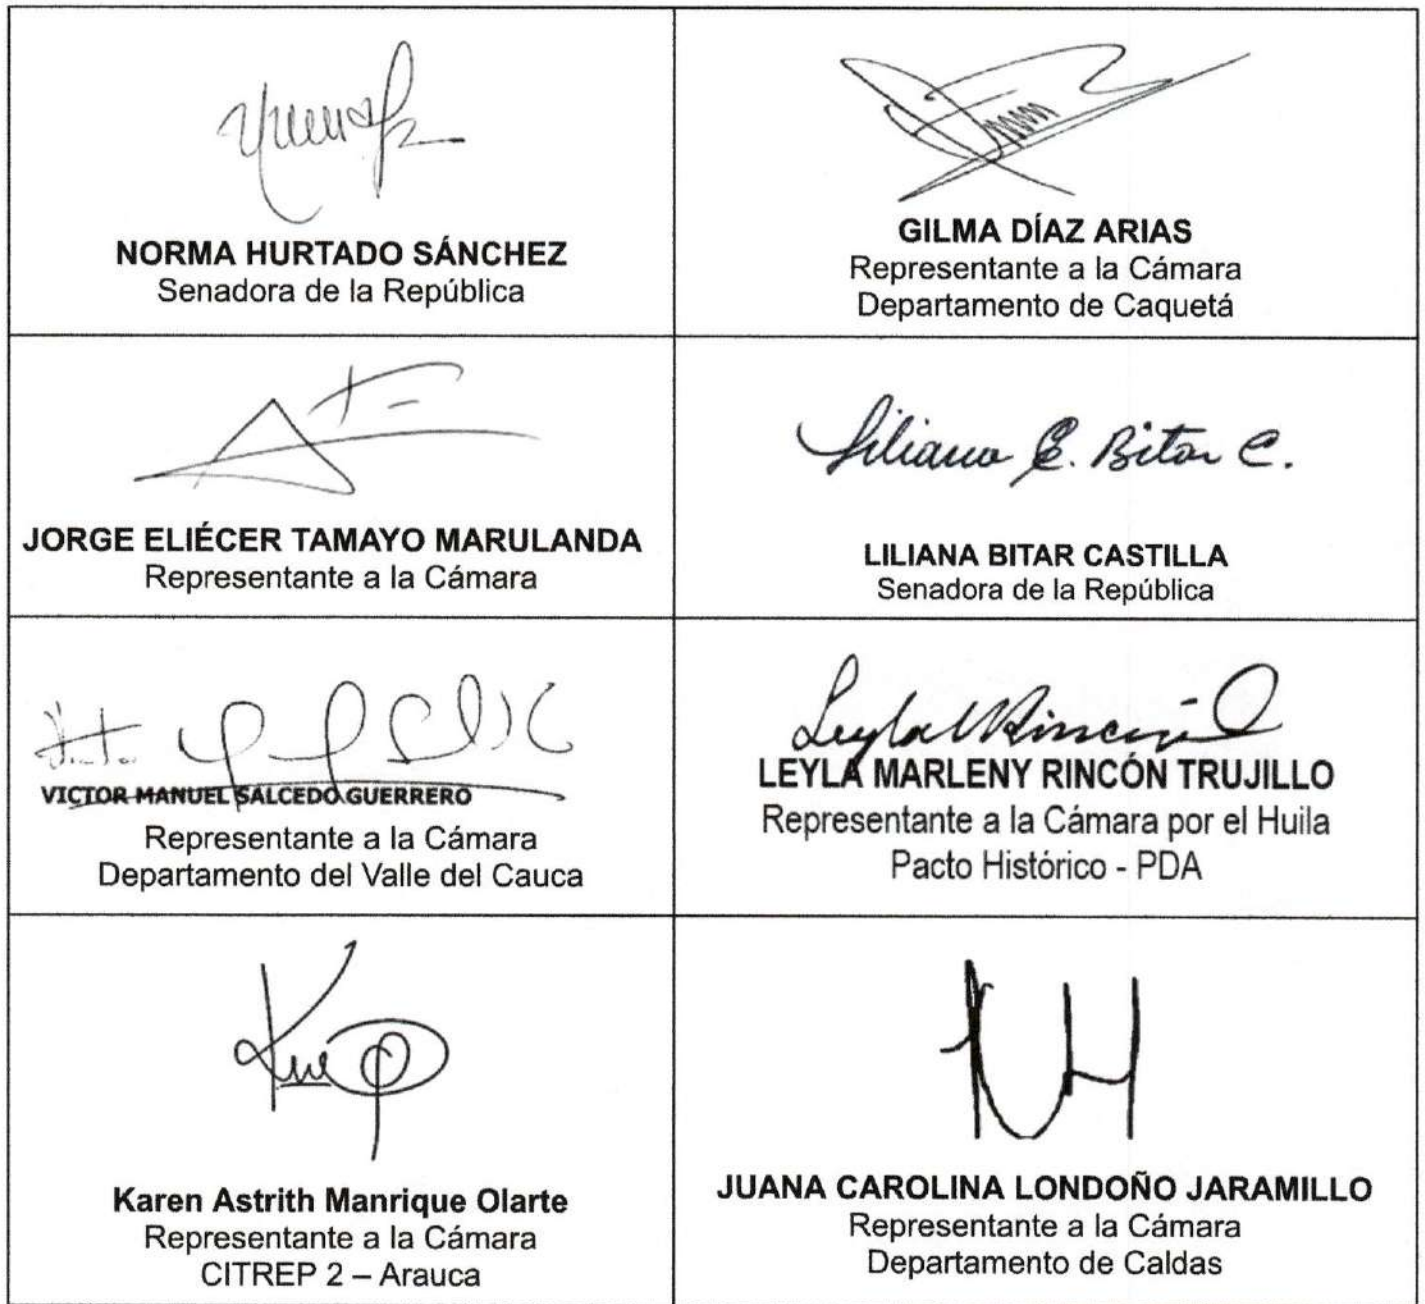 NORMA HURTADO SÁNCHEZ
Senadora de la República
GILMA DÍAZ ARIAS
Representante a la Cámara
Departamento de Caquetá
JORGE ELIÉCER TAMAYO MARULANDA
Representante a la Cámara
Liliana E. Bitar C.
LILIANA BITAR CASTILLA
Senadora de la República
VICTOR MANUEL SALCEDO GUERRERO
Representante a la Cámara
Departamento del Valle del Cauca
LEYLA MARLENY RINCÓN TRUJILLO
Representante a la Cámara por el Huila
Pacto Histórico - PDA
Karen Astrith Manrique Olarte
Representante a la Cámara
CITREP 2 – Arauca
JUANA CAROLINA LONDOÑO JARAMILLO
Representante a la Cámara
Departamento de Caldas